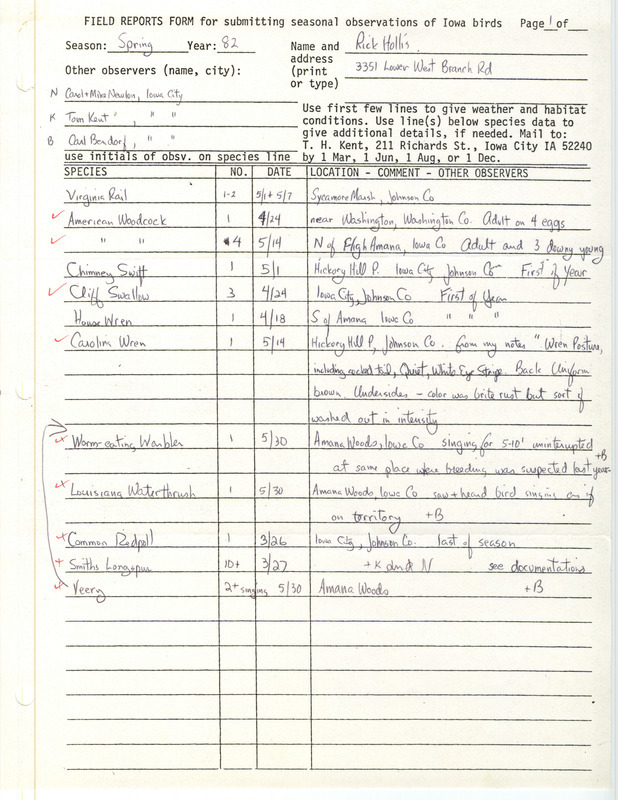 FIELD REPORTS FORM for submitting seasonal observations of Iowa birds Page 1 of
Season: Spring Year: 82 Name and Rick Hollis
address
(print 3351 Lower West Branch Rd
or type)
Other observers (name, city):
N Carol+Mike Newlon, Iowa City
K Tom Kent " , " "
B Carl Bendorf, " "
use initials of obsv. on species line
Use first few lines to give weather and habitat
conditions. Use line(s) below species data to
give additional details, if needed. Mail to:
T. H. Kent, 211 Richards St., Iowa City IA 52240
by 1 Mar, 1 Jun, 1 Aug, or 1 Dec.
SPECIES NO. DATE LOCATION - COMMENT - OTHER OBSERVERS
Virginia Rail 1-2 5/1+5/7 Sycamore Marsh, Johnson Co
American Woodcock 1 4/24 near Washington, Washington Co. Adult on 4 eggs
" " 4 5/14 N of High Amana, Iowa Co Adult and 3 downy young
Chimney Swift 1 5/1 Hickory Hill P. Iowa City Johnson Co First of Year
Cliff Swallow 3 4/24 Iowa City, Johnson Co First of Year
House Wren 1 4/18 S of Amana Iowa Co " " "
Carolina Wren 1 5/14 Hickory Hill P, Johnson Co. from my notes "Wren Posture,
including cocked tail, Quiet, White Eye Stripe. Back Uniform
brown. Undersides - color was brite rust but sort of
washed out in intensity
Worm-eating Warbler 1 5/30 Amana Woods, Iowa Co singing for 5-10' uninterrupted
at same place where breeding was suspected last year +B
Louisiana Waterthrush 1 5/30 Amana Woods, Iowa Co saw + heard bird singing as if
on territory +B
Common Redpoll 1 3/26 Iowa City, Johnson Co. last of season
Smiths Longspur 10+ 3/27 +K and N see documentations
Veery 2+ singing 5/30 Amana Woods +B